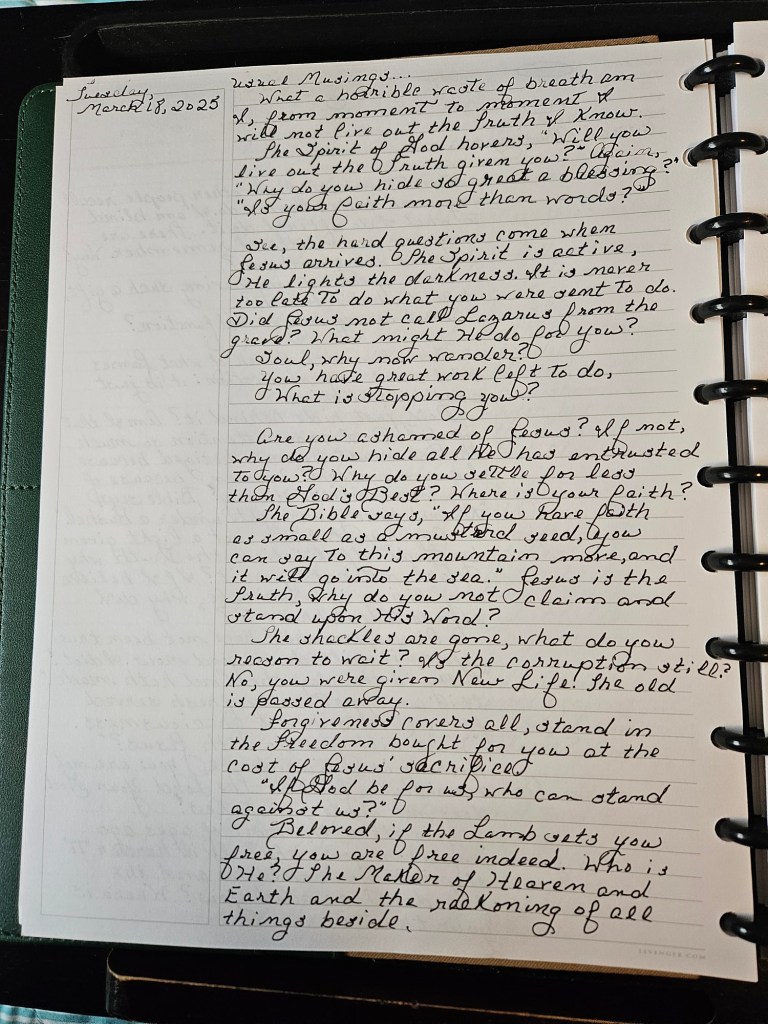 Tuesday,
March 18, 2025
usual Musings...
What a horrible waste of breath am
I, from moment to moment I
will not live out the Truth I Know.
The Spirit of God hovers, "Will you
live out the Truth given you?" Again,
"Why do you hide so great a blessing?"
"Is your faith more than words?"
See, the hard questions come when
Jesus arrives. The Spirit is active,
He lights the darkness. It is never
too late To do what you were sent To do.
Did Jesus not call Lazarus from the
grave? What might He do for you?
Soul, why now wander?
You have great work left To do,
What is stopping you?
Are you ashamed of Jesus? If not,
why do you hide all He has entrusted
To you? Why do you settle for less
than God's Best? Where is your faith?
The Bible says, "If you have faith
as small as a mustard seed, you
can say To this mountain move, and
it will go into the sea." Jesus is the
Truth, why do you not claim and
stand upon His Word?
The shackles are gone, what do you
reason to wait? Is the corruption still?
No, you were given New Life. The old
is passed away.
Forgiveness covers all, stand in
the Freedom bought for you at the
cost of Jesus' sacrifice
"If God be for us, who can stand
against us?"
Beloved, if the Lamb sets you
free, you are free indeed. Who is
He? The Maker of Heaven and
Earth and the reckoning of all
things beside.